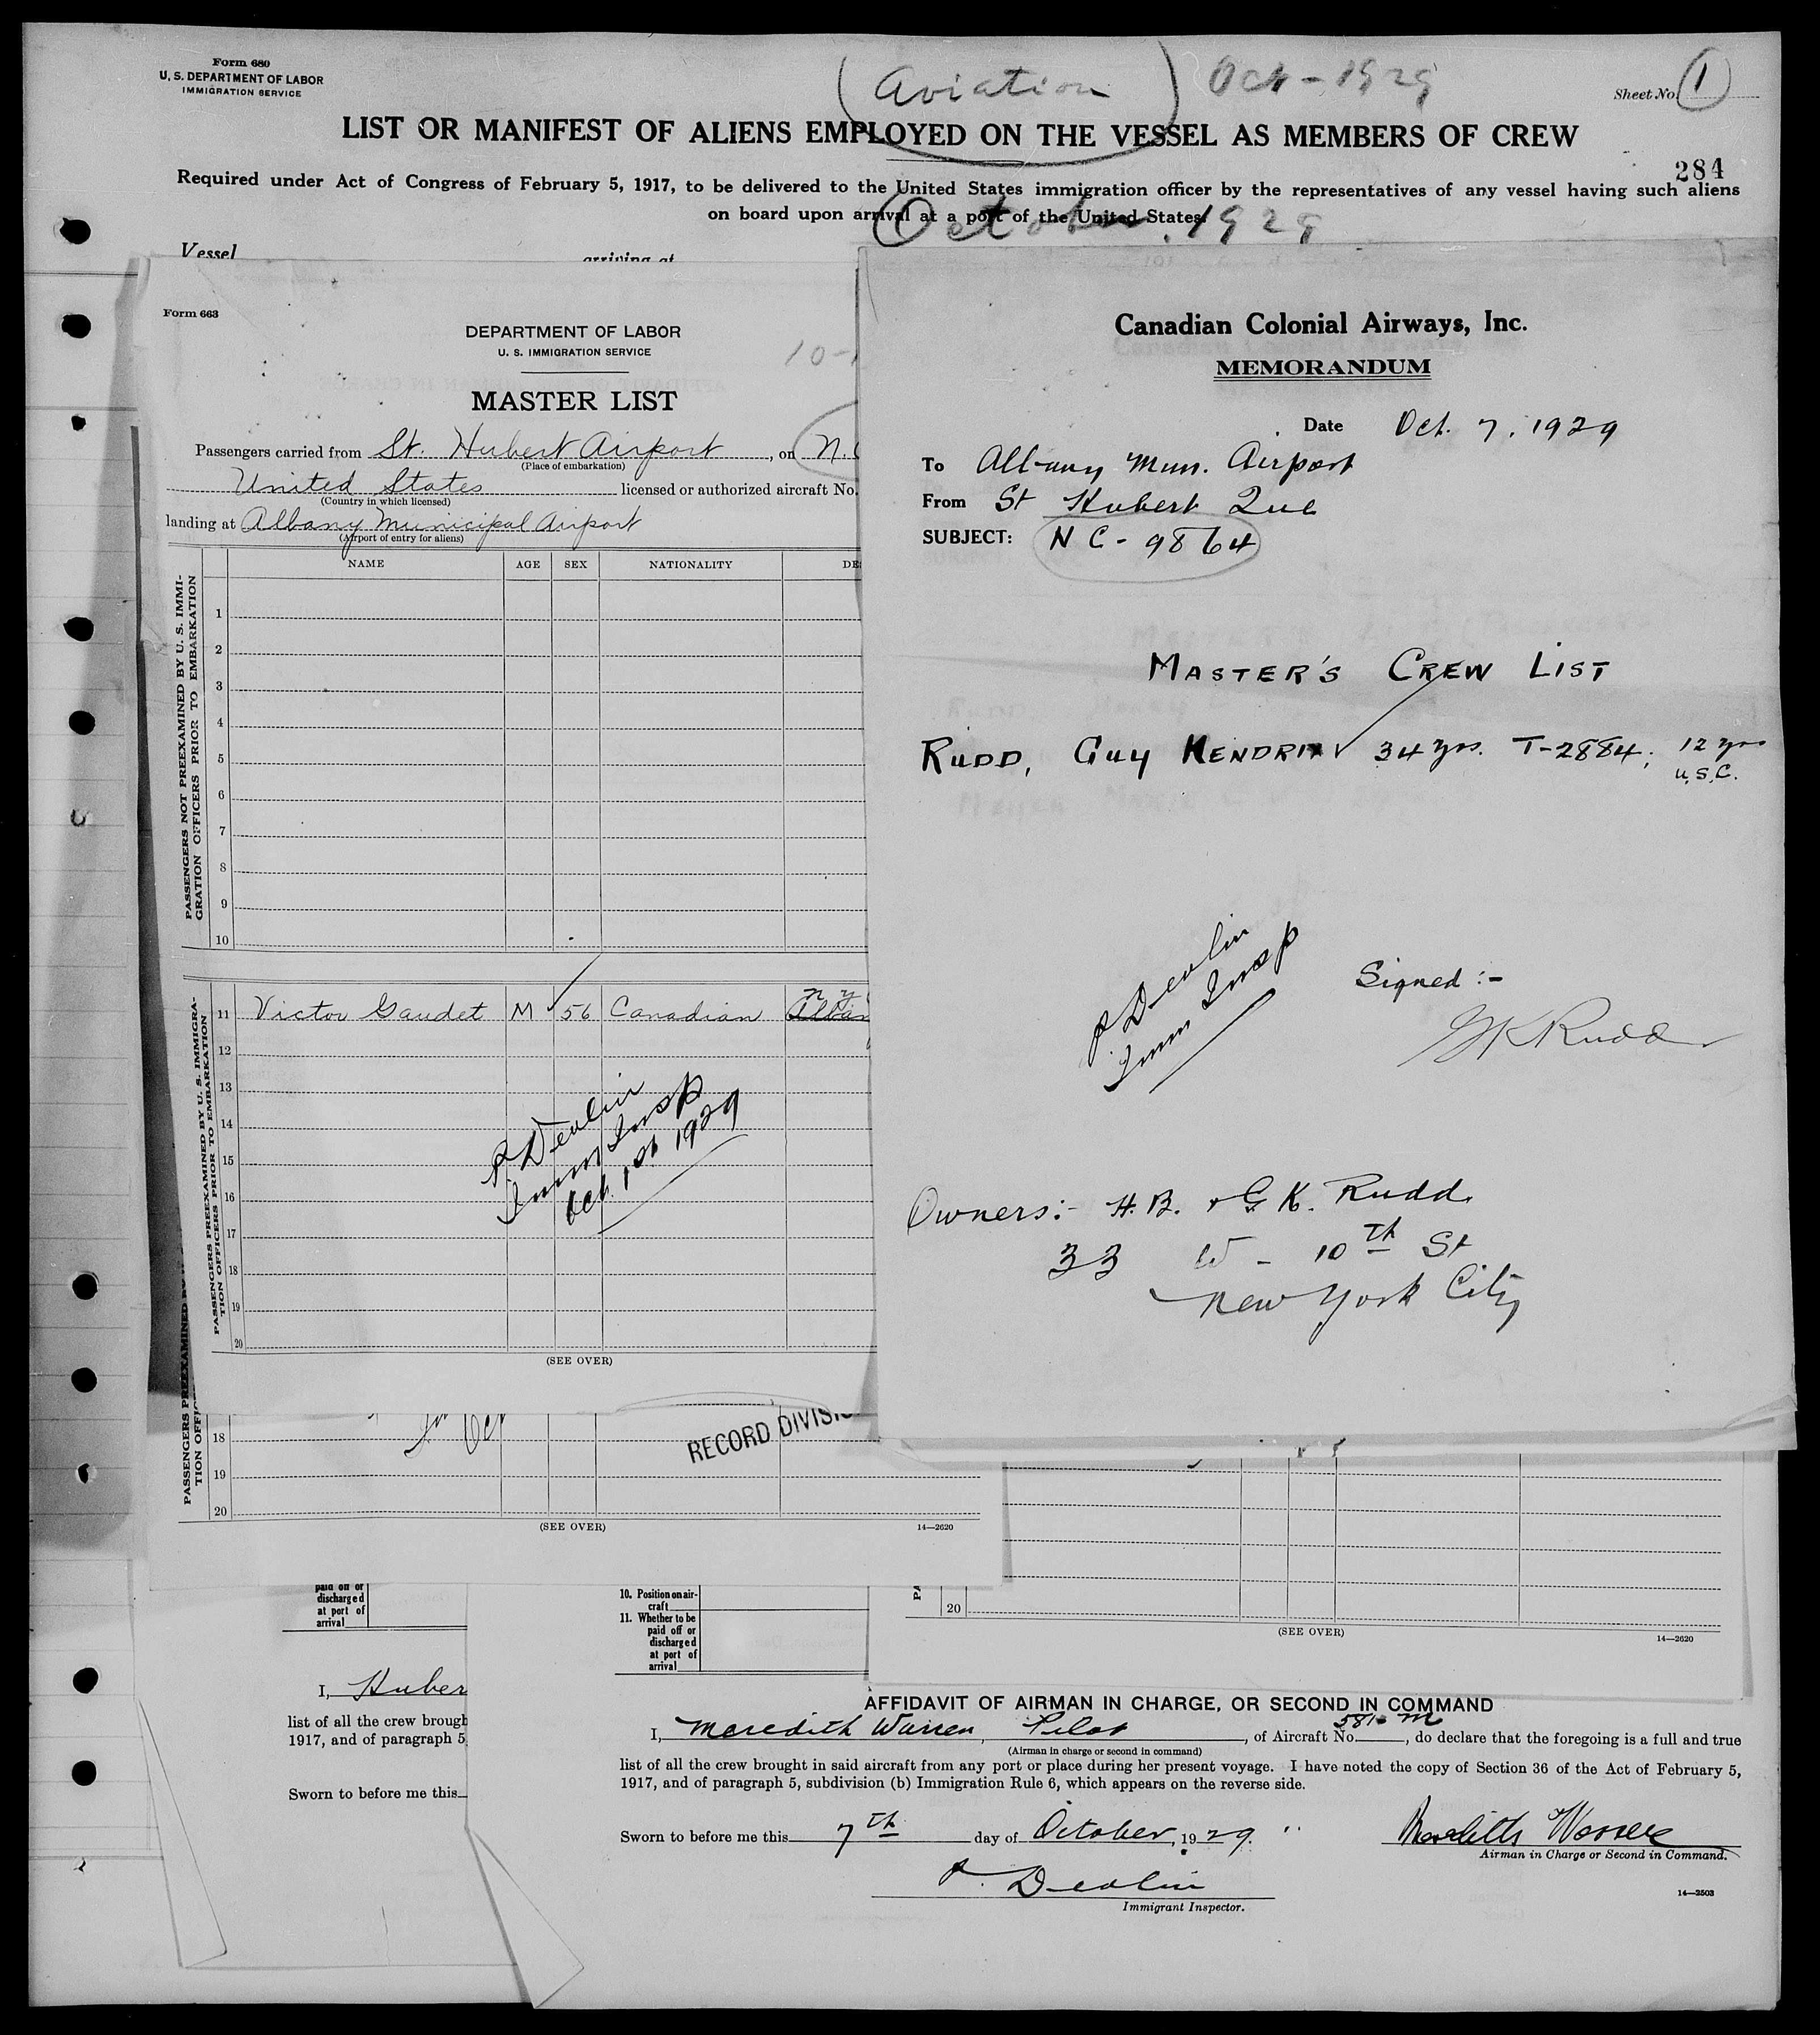 Form 680
U. S. DEPARTMENT OF LABOR
IMMIGRATION SERVICE
(Aviation) Oct - 1929
Sheet No. 1
LIST OR MANIFEST OF ALIENS EMPLOYED ON THE VESSEL AS MEMBERS OF CREW
284
Required under Act of Congress of February 5, 1917, to be delivered to the United States immigration officer by the representatives of any vessel having such aliens
on board upon arrival at a port of the United States.
October. 1929
Vessel arriving at
Form 663
DEPARTMENT OF LABOR
U. S. IMMIGRATION SERVICE
10-1
MASTER LIST
Passengers carried from St. Hubert Airport, on N.C
(Place of embarkation)
United States licensed or authorized aircraft No.
(Country in which licensed)
landing at Albany Municipal Airport
(Airport of entry for aliens)
NAME AGE SEX NATIONALITY DE
PASSENGERS NOT PREEXAMINED BY U. S. IMMI-
GRATION OFFICERS PRIOR TO EMBARKATION
1
2
3
4
5
6
7
8
9
10
PASSENGERS PREEXAMINED BY U. S. IMMIGRA-
TION OFFICERS PRIOR TO EMBARKATION
n y
11 Victor Gaudet M 56 Canadian Alban
12
13
14
15
16
17
18
19
20
P Devlin
Imm Insp
Oct. 1st 1929
(SEE OVER)
Canadian Colonial Airways, Inc.
MEMORANDUM
Date Oct. 7, 1929
To Albany Mun. Airport
From St Hubert Que
SUBJECT: N C - 9864
MASTER'S CREW LIST
RUDD, GUY KENDRIX 34 yrs. T-2884; 12 yrs
U.S.C.
P Devlin
Imm Insp
Signed :-
GKRudd
Owners:- H.B. & G K. Rudd.
33 W - 10th St
New York City
PASSENGERS PREEXAMINED
TION OFFI
18
19
20
Oct
RECORD DIVISIO
(SEE OVER)
14—2620
20
(SEE OVER)
14—2620
paid off or
discharged
at port of
arrival
10. Position on air-
craft
11. Whether to be
paid off or
discharged
at port of
arrival
I, Huber
list of all the crew brough
1917, and of paragraph 5
Sworn to before me this
AFFIDAVIT OF AIRMAN IN CHARGE, OR SECOND IN COMMAND
I, Meredith Warren, Pilot, of Aircraft No. 581-M, do declare that the foregoing is a full and true
(Airman in charge or second in command)
list of all the crew brought in said aircraft from any port or place during her present voyage. I have noted the copy of Section 36 of the Act of February 5,
1917, and of paragraph 5, subdivision (b) Immigration Rule 6, which appears on the reverse side.
Sworn to before me this 7th day of October, 1929.
Meredith Warren
Airman in Charge or Second in Command.
P. Devlin
Immigrant Inspector.
14—2503